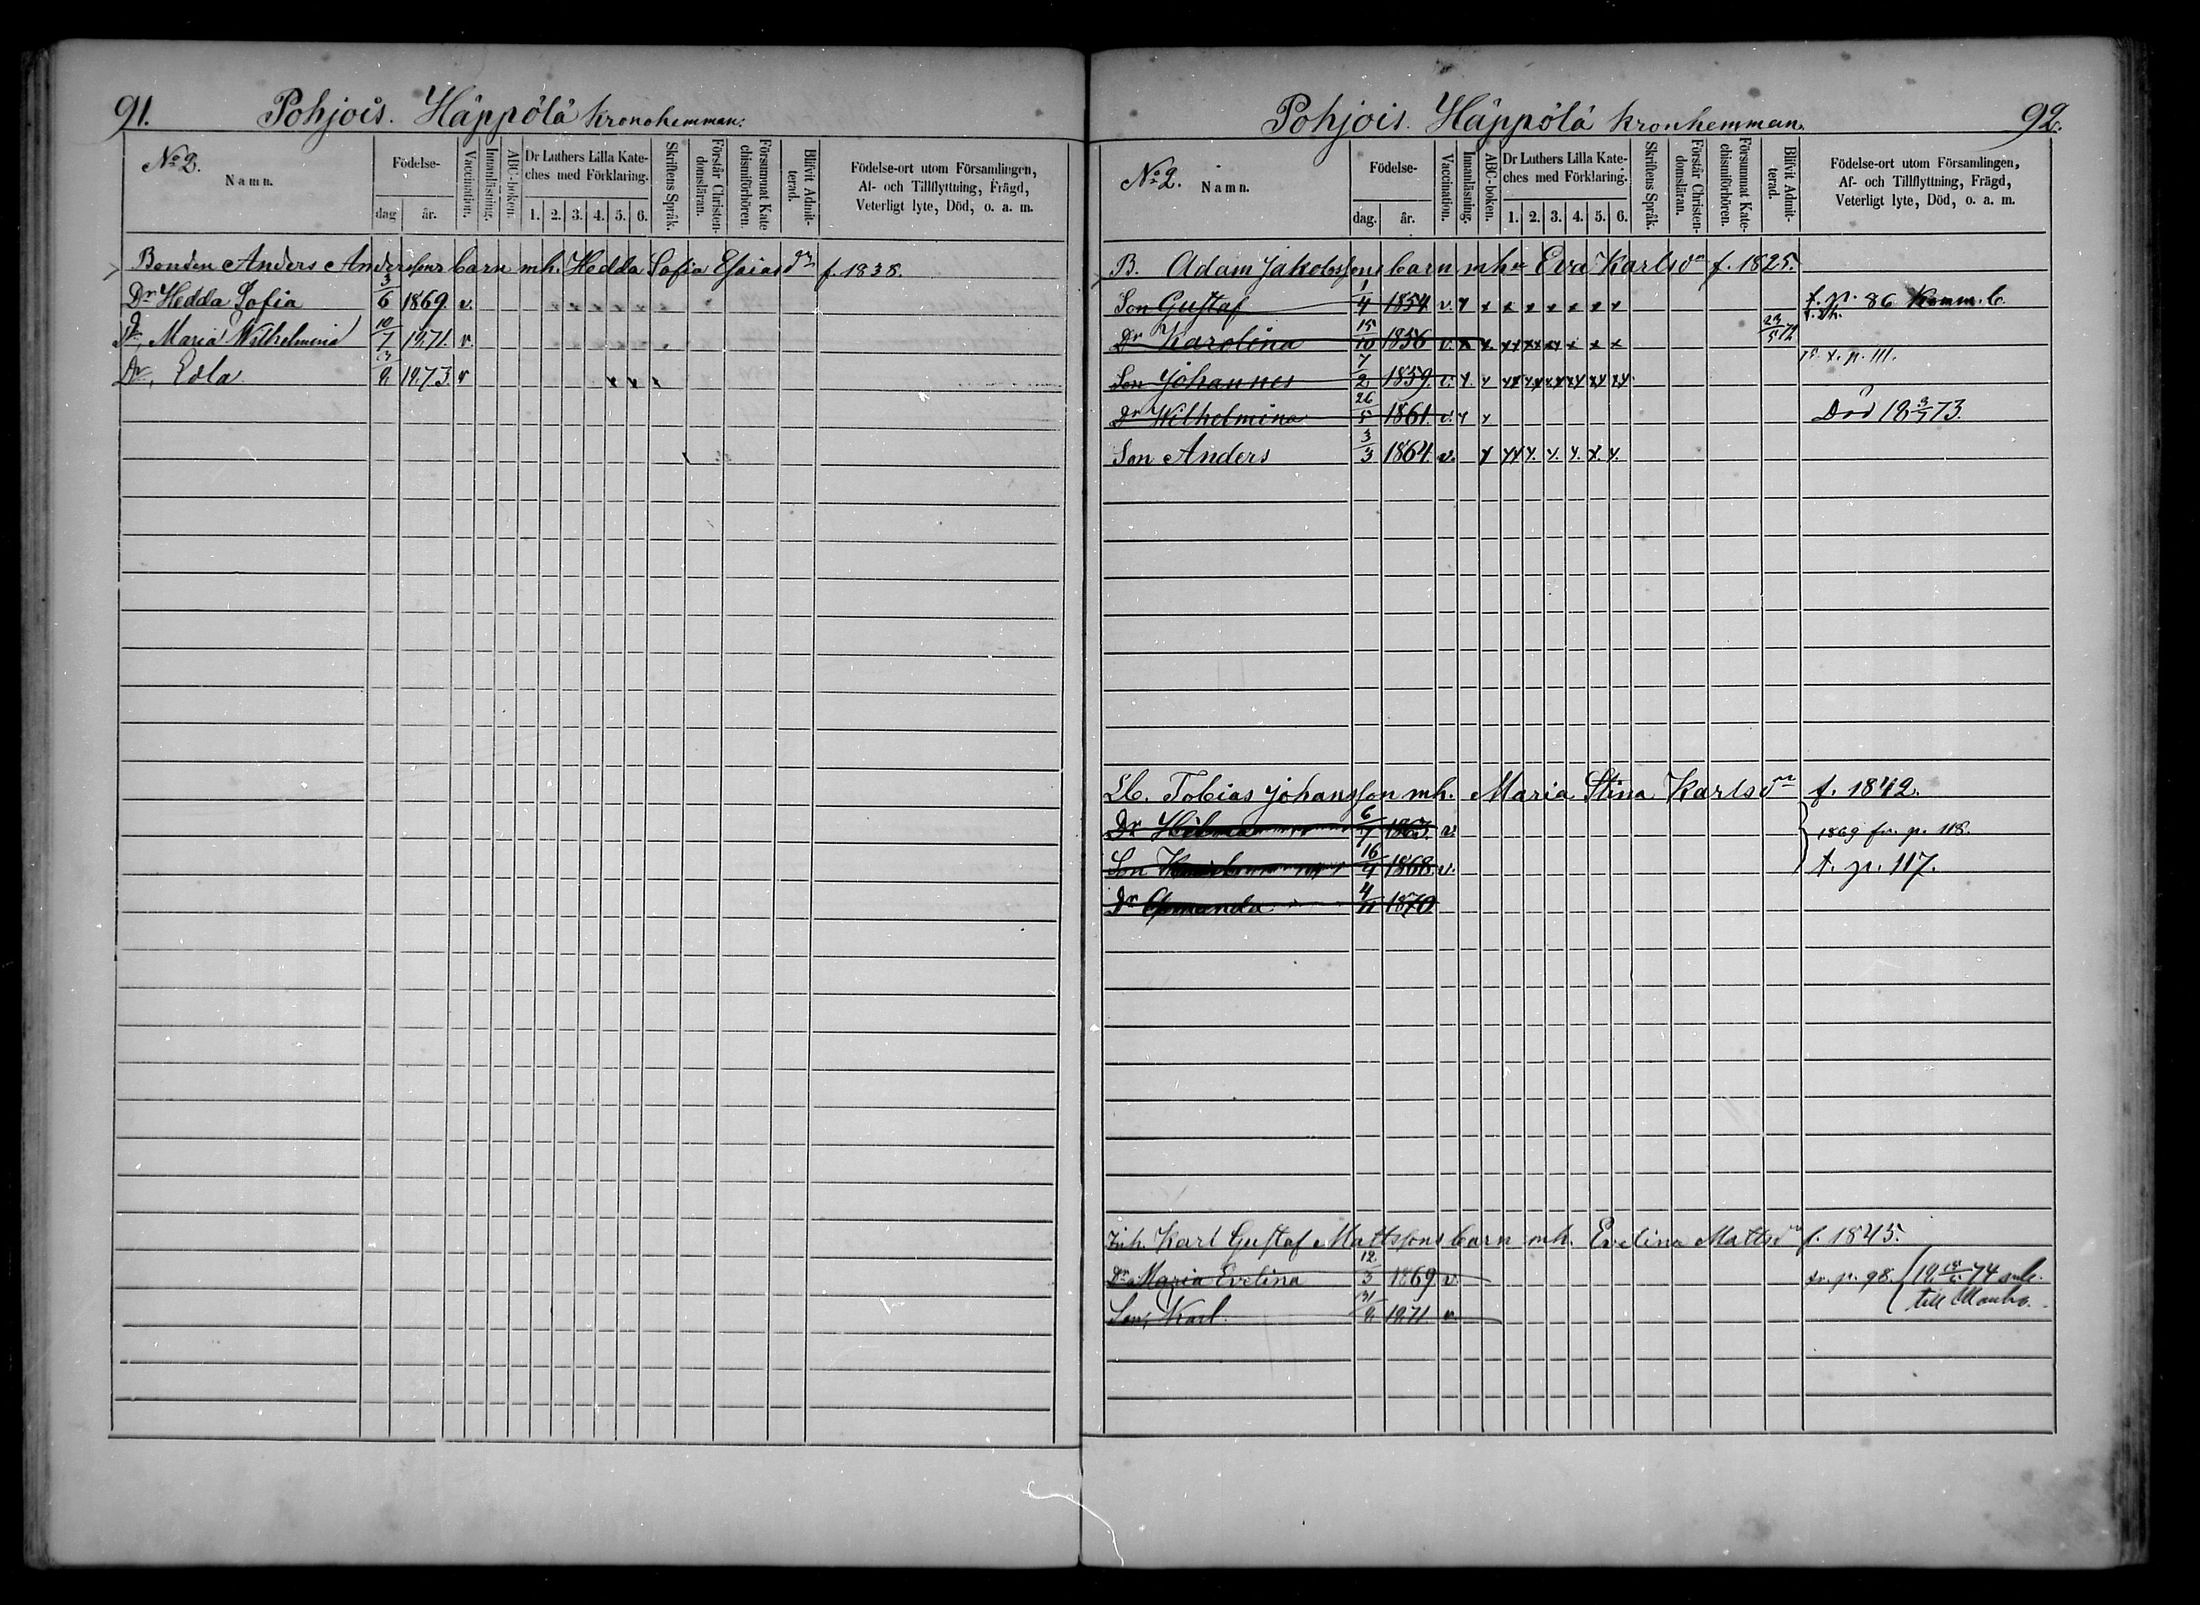 91. Pohjois. Häppölä kronohemman.
No 2. Namn.
Födelse-
dag år.
Vaccination.
Innanläsning.
ABC-boken.
Dr Luthers Lilla Kate-
ches med Förklaring.
1. 2. 3. 4. 5. 6.
Skriftens Språk.
Förstår Christen-
domsläran.
Försummat Kate
chismiförhören.
Blifvit Admit-
terad.
Födelse-ort utom Församlingen,
Af- och Tillflyttning, Frägd,
Veterligt lyte, Död, o. a. m.
Bonden Anders Anderssons barn mh. Hedda Sofia Esaiasdr f. 1838.
Dr Hedda Sofia 3/6 1869 v. x x x x x x
Dr, Maria Wilhelmina 10/7 1871. v. x x x x x x
Dr, Edla 3/9 1873. v x x x
Pohjois. Häppölä kronhemman. 92.
No 2. Namn.
Födelse-
dag. år.
Vaccination.
Innanläsning.
ABC-boken.
Dr Luthers Lilla Kate-
ches med Förklaring.
1. 2. 3. 4. 5. 6.
Skriftens Språk.
Förstår Christen-
domsläran.
Försummat Kate-
chismiförhören.
Blifvit Admit-
terad.
Födelse-ort utom Församlingen,
Af- och Tillflyttning, Frägd,
Veterligt lyte, Död, o. a. m.
B. Adam Jakobssons barn mhu Eva Karlsdr f. 1825.
Son Gustaf 1/4 1854 v. x x x x x x x x t. p. 86 Komm. b.
Dr Karolina 15/10 1856 v. x x. xx xx xx x x x 23/5 72
Son Johannes 7/2 1859. v. x. x xx xx xx xx xx xx p. 111.
Dr Wilhelmina 26/5 1861. v. x x Död 18 3/7 73.
Son Anders 3/3 1864. v. x xx x. x. x. x. x.
Lb. Tobias Johansson mh. Maria Stina Karlsdr f. 1842.
Dr Hilma 6/7 1863. v. 1869 fr. p. 118.
Son 16/4 1868. v. t. p. 117.
Dr Amanda 4/11 1870
Inh. Karl Gustaf Mattssons barn mh. Evelina Mattsdr f. 1845.
Dr Maria Evelina 12/3 1869 v. p. 98. 74
Son, Karl. 31/8 1871 v. till